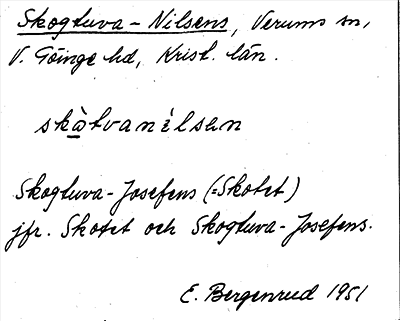 Skogtuva - Nilsens, Verums sn,
V. Göinge hd, Krist. län.
skàtvanílsen
Skogtuva-Josefens (=Skotet)
jfr. Skotet och Skogtuva-Josefens.
E. Bergenrud 1951